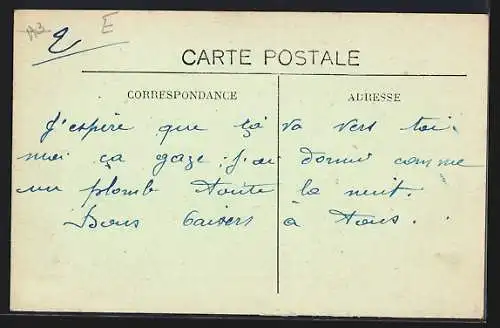 A3
2
E
CARTE POSTALE
CORRESPONDANCE
ADRESSE
J'espère que ça va vers toi.
moi ça gaze, j'ai dormi comme
un plomb toute la nuit.
Bons baisers à tous.